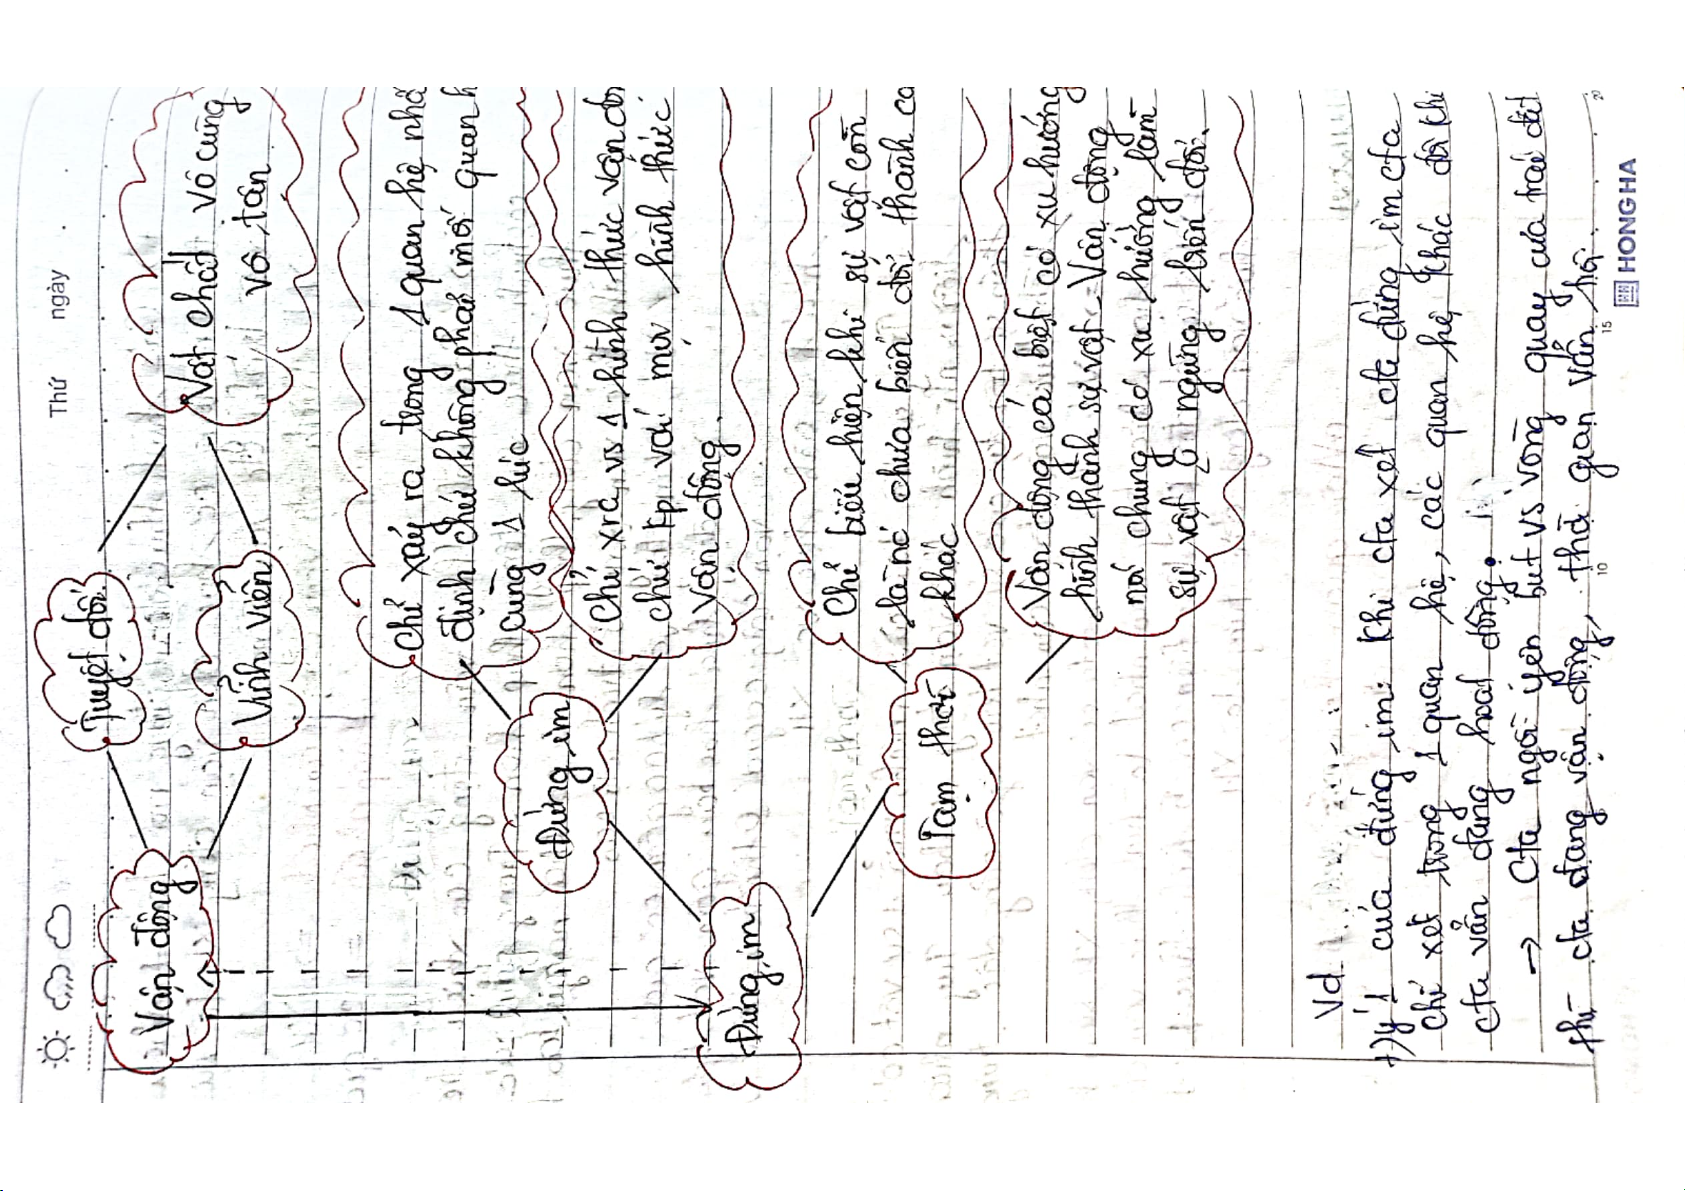 Thứ ngày
Vận động
Tuyệt đối
Vĩnh viễn
Vật chất vô cùng
vô tận
Đứng im
Đứng im
Chỉ xảy ra trong 1 quan hệ nhất
định chứ không phải mối quan h
cùng 1 lúc
Chỉ xra vs 1 hình thức vận độ
chứ kp với mọi hình thức
vận động.
Tạm thời
Chỉ biểu hiện khi sự vật còn
là nó chưa biến đổi thành cá
khác
Vận động cá biệt có xu hướng
hình thành sự vật - Vận động
nói chung có xu hướng làm
sự vật 0 ngừng biến đổi.
Vd
+) ý 1 của đứng im: Khi cta xét cta đứng im cta
chỉ xét trong 1 quan hệ, các quan hệ khác đôi khi
cta vẫn đang hoạt động.
→ Cta ngồi yên but vs vòng quay của trái đất
thì cta đang vận động,
10 15 20
HONG HA